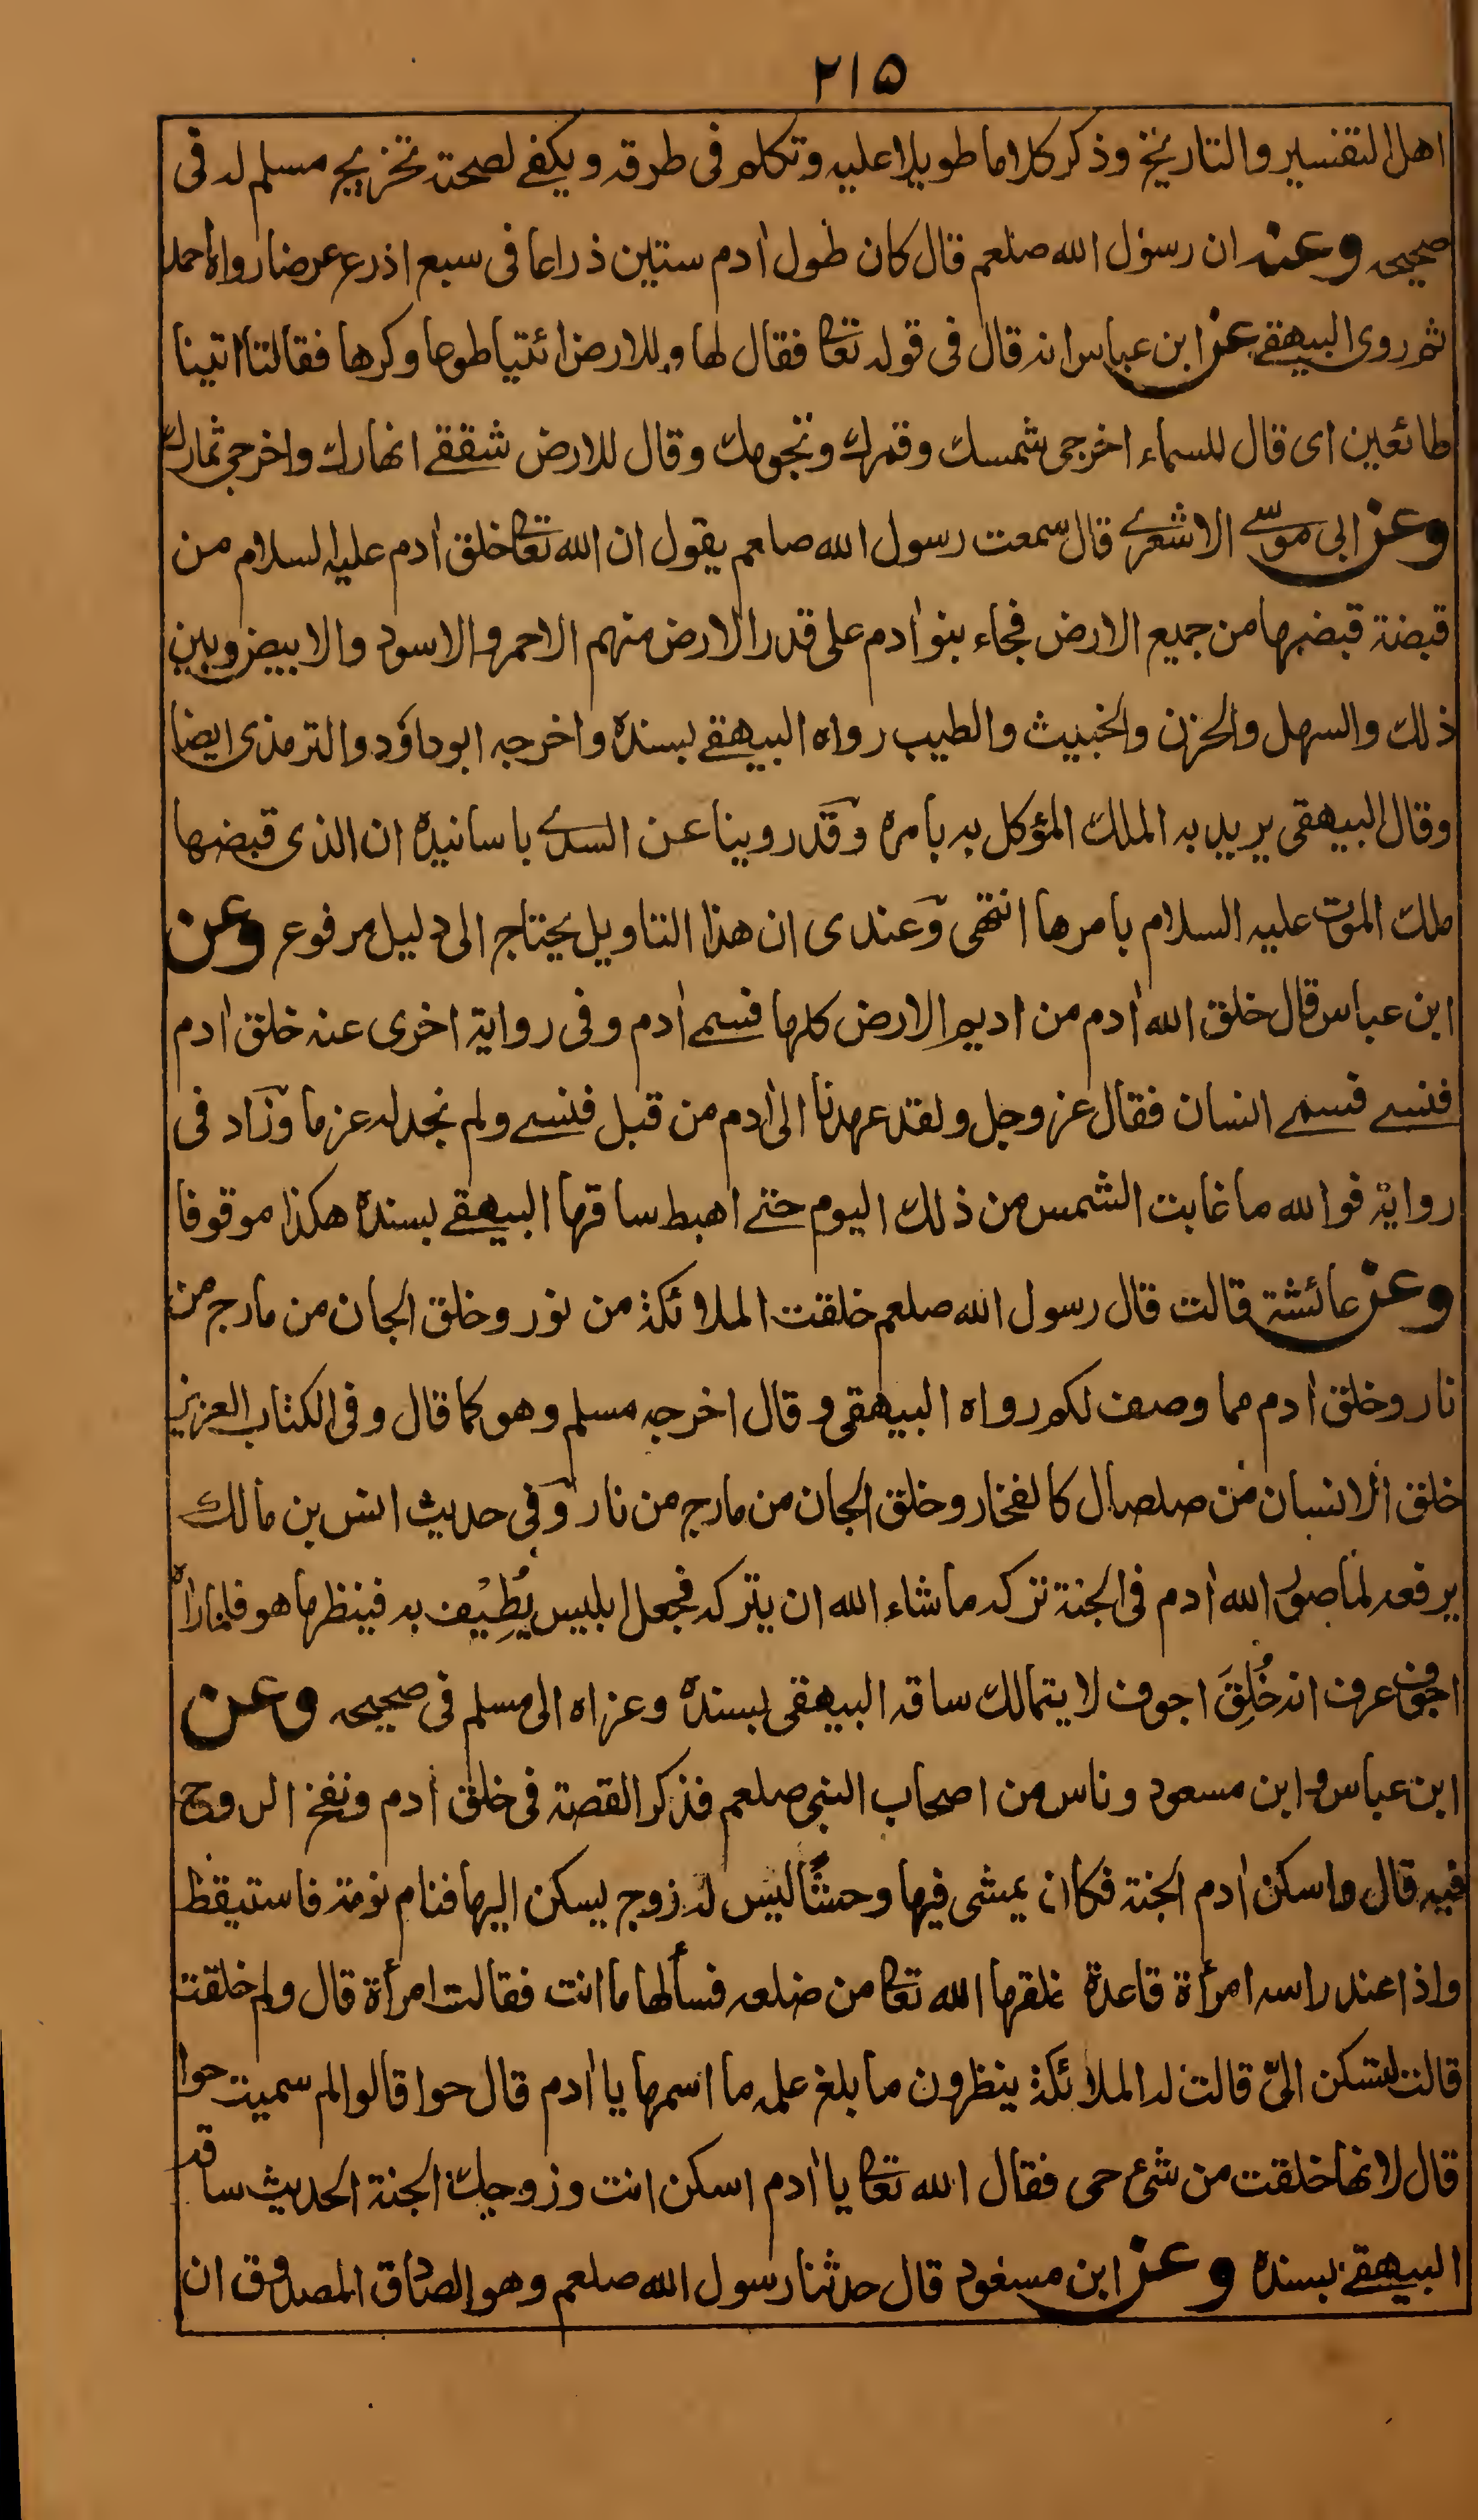 ٢١٥
اهل التفسير والتاريخ وذكر كلاما طويلا عليه وتكلم فى طرقه ويكفے لصحته تخريج مسلم له فى
صحيحه وعنه ان رسول الله صلعم قال كان طول اٰدم ستين ذراعا فى سبع اذرع عرضا رواه احمد
ثم روى البيهقے عن ابن عباس انه قال فى قوله تعالى فقال لها وللارض ائتيا طوعا وكرها فقالتا اتينا
طائعين اى قال للسماء اخرجى شمسك وقمرك ونجومك وقال للارض شققے انهارك واخرجى ثمارك
وعن ابى موسے الاشعرے قال سمعت رسول الله صلعم يقول ان الله تعالى خلق اٰدم عليه السلام من
قبضة قبضها من جميع الارض فجاء بنو اٰدم على قدر الارض منهم الاحمر والاسود والابيض وبين
ذلك والسهل والحزن والخبيث والطيب رواه البيهقے بسنده واخرجه ابوداؤد والترمذى ايضا
وقال البيهقى يريد به الملك المؤكل به بامره وقد روينا عن السدے باسانيده ان الذى قبضها
ملك الموت عليه السلام بامرها انتهى وعندى ان هذا التاويل يحتاج الى دليل مرفوع وعن
ابن عباس قال خلق الله اٰدم من اديم الارض كلها فسمے اٰدم وفى رواية اخرى عنه خلق اٰدم
فنسے فسمے انسان فقال عز وجل ولقد عهدنا الى اٰدم من قبل فنسے ولم نجد له عزما وزاد فى
رواية فوالله ما غابت الشمس من ذلك اليوم حتے اهبط ساقها البيهقے بسنده هكذا موقوفا
وعن عائشة قالت قال رسول الله صلعم خلقت الملائكة من نور وخلق الجان من مارج من
نار وخلق اٰدم مما وصف لكم رواه البيهقى وقال اخرجه مسلم وهو كما قال وفى الكتاب العزيز
خلق الانسان من صلصال كالفخار وخلق الجان من مارج من نار وفى حديث انس بن مالك
يرفعه لما صور الله اٰدم فى الجنة تركه ما شاء الله ان يتركه فجعل ابليس يُطِيْف به فينظر ما هو فلما راٰه
اجوف عرف انه خُلِقَ اجوف لا يتمالك ساقه البيهقى بسنده وعزاه الى مسلم فى صحيحه وعن
ابن عباس وابن مسعود وناس من اصحاب النبى صلعم فذكر القصة فى خلق اٰدم ونفخ الروح
فيه قال واسكن اٰدم الجنة فكان يمشى فيها وحشًا ليس له زوج يسكن اليها فنام نومة فاستيقظ
واذا عند راسه امرأة قاعدة خلقها الله تعالى من ضلعه فسألها ما انت فقالت امرأة قال ولم خلقت
قالت لتسكن الىّ قالت له الملائكة ينظرون ما بلغ علمه ما اسمها يا اٰدم قال حوا قالوا لم سميت حوا
قال لانها خلقت من شئ حى فقال الله تعالى يا اٰدم اسكن انت وزوجك الجنة الحديث ساقه
البيهقے بسنده وعن ابن مسعود قال حدثنا رسول الله صلعم وهو الصادق المصدوق ان